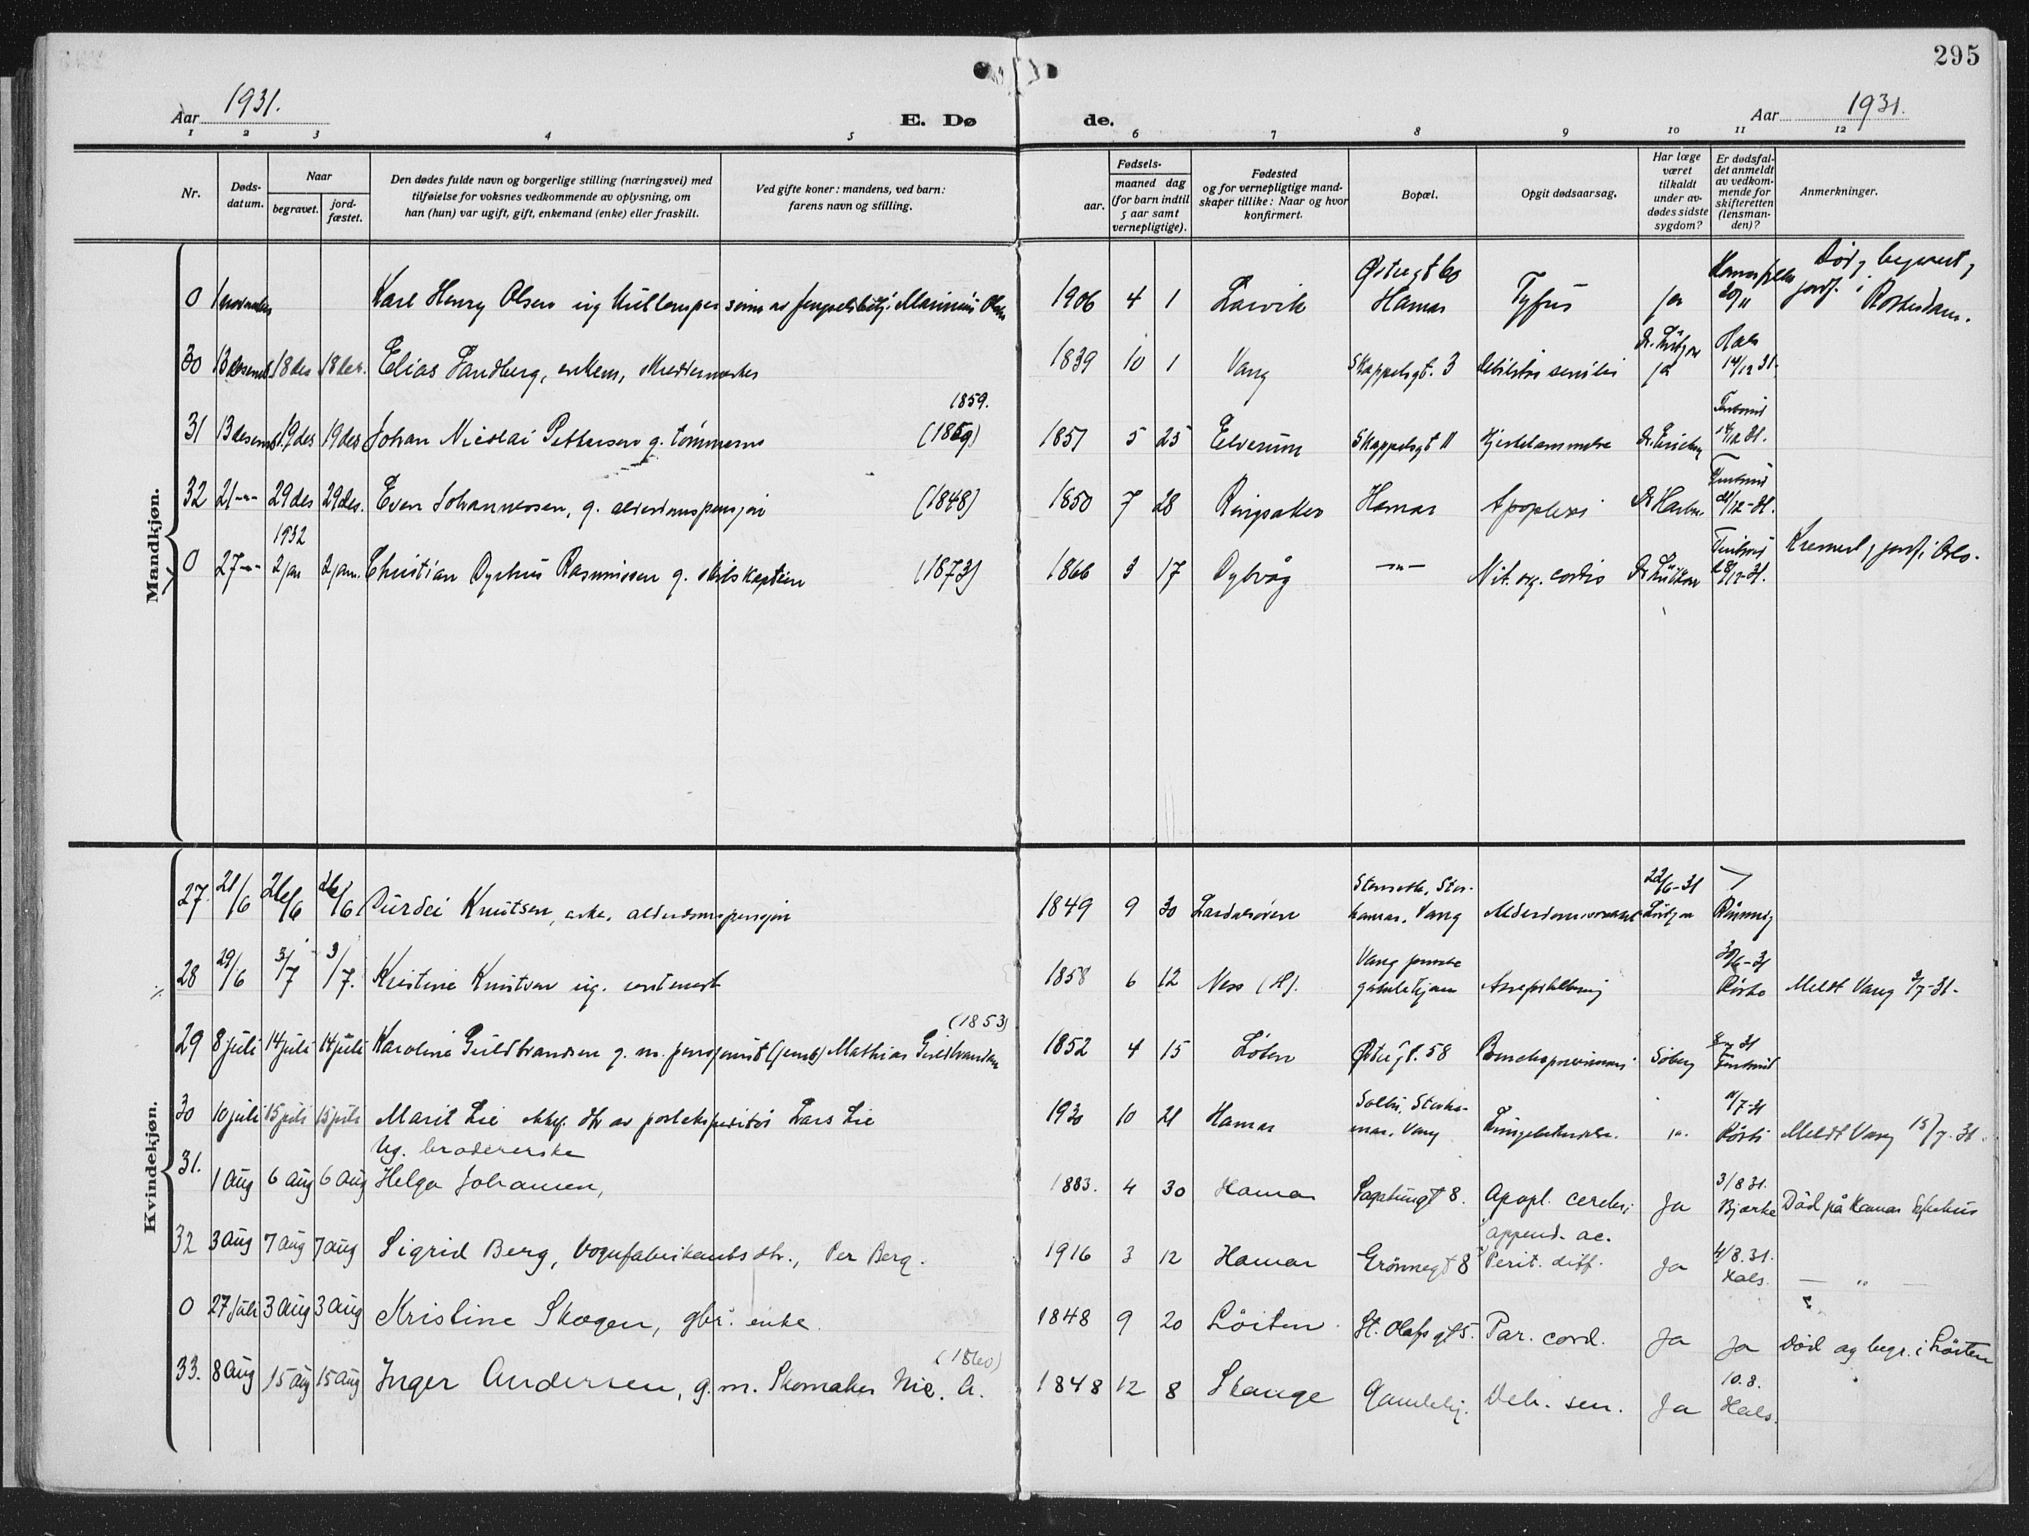 295
Aar 1931.
E. Døde.
Aar 1931.
1 2 3 4 5 6 7 8 9 10 11 12
Nr.
Døds-
datum.
Naar
begravet.
jord-
fæstet.
Den dødes fulde navn og borgerlige stilling (næringsvei) med
tilføielse for voksnes vedkommende av oplysning, om
han (hun) var ugift, gift, enkemand (enke) eller fraskilt.
Ved gifte koner: mandens, ved barn:
farens navn og stilling.
Fødsels-
aar.
maaned dag
(for barn indtil
5 aar samt
vernepligtige).
Fødested
og for vernepligtige mand-
skaper tillike: Naar og hvor
konfirmert.
Bopæl.
Opgit dødsaarsag.
Har læge
været
tilkaldt
under av-
dødes sidste
sygdom?
Er dødsfal-
det anmeldt
av vedkom-
mende for
skifteretten
(lensman-
den)?
Anmerkninger.
Mandkjøn.
0 1 november Karl Henry Olsen ug kullemper sønn av fengselsbetj. Marinius Olsen 1906 4 1 Larvik Østregt 60 Hamar Tyfus ja 20/11 Død, begravet, jordf. i Rotterdam.
30 13 desemb. 18 des 18 des. Elias Sandberg, enkem, skreddermester 1839 10 1 Vang Skappelsgt. 3 debilitas senilis ja Hals 14/12 31.
31 13 desemb. 19 des 19 des Johan Nicolai Pettersen g. tømmerm 1859. (1859) 1851 5 25 Elverum Skappelsgt 11 Hjertelammelse 14/12 31.
32 21-"- 29 des 29 des. Even Johannessen, g. alderdomspensjon (1848) 1850 7 28 Ringsaker Hamar Apoplexi 21/12-31.
1932
0 27-"- 2 jan 2 jan. Christian Dyrhus Rasmussen g. skibskaptein (1873) 1866 3 17 Dybvåg -"- Vit. org. cordis 28/12-31. Kremert, jordf. i Oslo.
Kvindekjøn.
27. 21/6 26/6 26/6 Knutsen, enke, alderdomspensjon 1849 9 30 Lardalsøren Storhamar, Vang 22/6-31
28 29/6 3/7 3/7. Kristine Knutsen ug. 1858 6 12 Ness (H). Vang gamlehjem Åreforkalkning 30/6-31 Meldt Vang 3/7-31-
29 8 juli 14 juli 14 juli Karoline Guldbrandsen g. m. Mathias Guldbrandsen (1853) 1852 4 15 Løten Østregt. 58 Bronchopneumoni Söberg 31
30 10 juli 15 juli 15 juli Marit Lie dtr av postekspeditør Lars Lie 1930 10 21 Hamar Solbu, Storhamar, Vang Lungebetendelse. ja. 11/7-31 Meldt Vang 15/7. 31.
31. 1 Aug 6 aug 6 aug Ug. brodererske Helga Johansen, 1883. 4 30 Hamar 8. Apopl. cerebri Ja 3/8 31. Bjærke Død på Hamar Sykehus
32 3 aug 7 aug 7 aug Sigrid Berg, Vognfabrikants dtr., Per Berg. 1916 3 12 Hamar Grönnegt 8 append. ac. Perit. diff. Ja 4/8.31. Hals. — " —
0 27 Juli 3 aug 3 aug Kristine Skogen, gbr. enke. 1848 9 20 Löiten St. Olafs gt 5. Par. cord. Ja Ja Död og begr. i Löiten
33. 8 aug 15 aug 15 aug Inger Andersen, g. m. Skomaker Nic. A. (1860) 1848 12 8 Stange Gamlehj. Deb. sen. Ja 10.8. Hals.